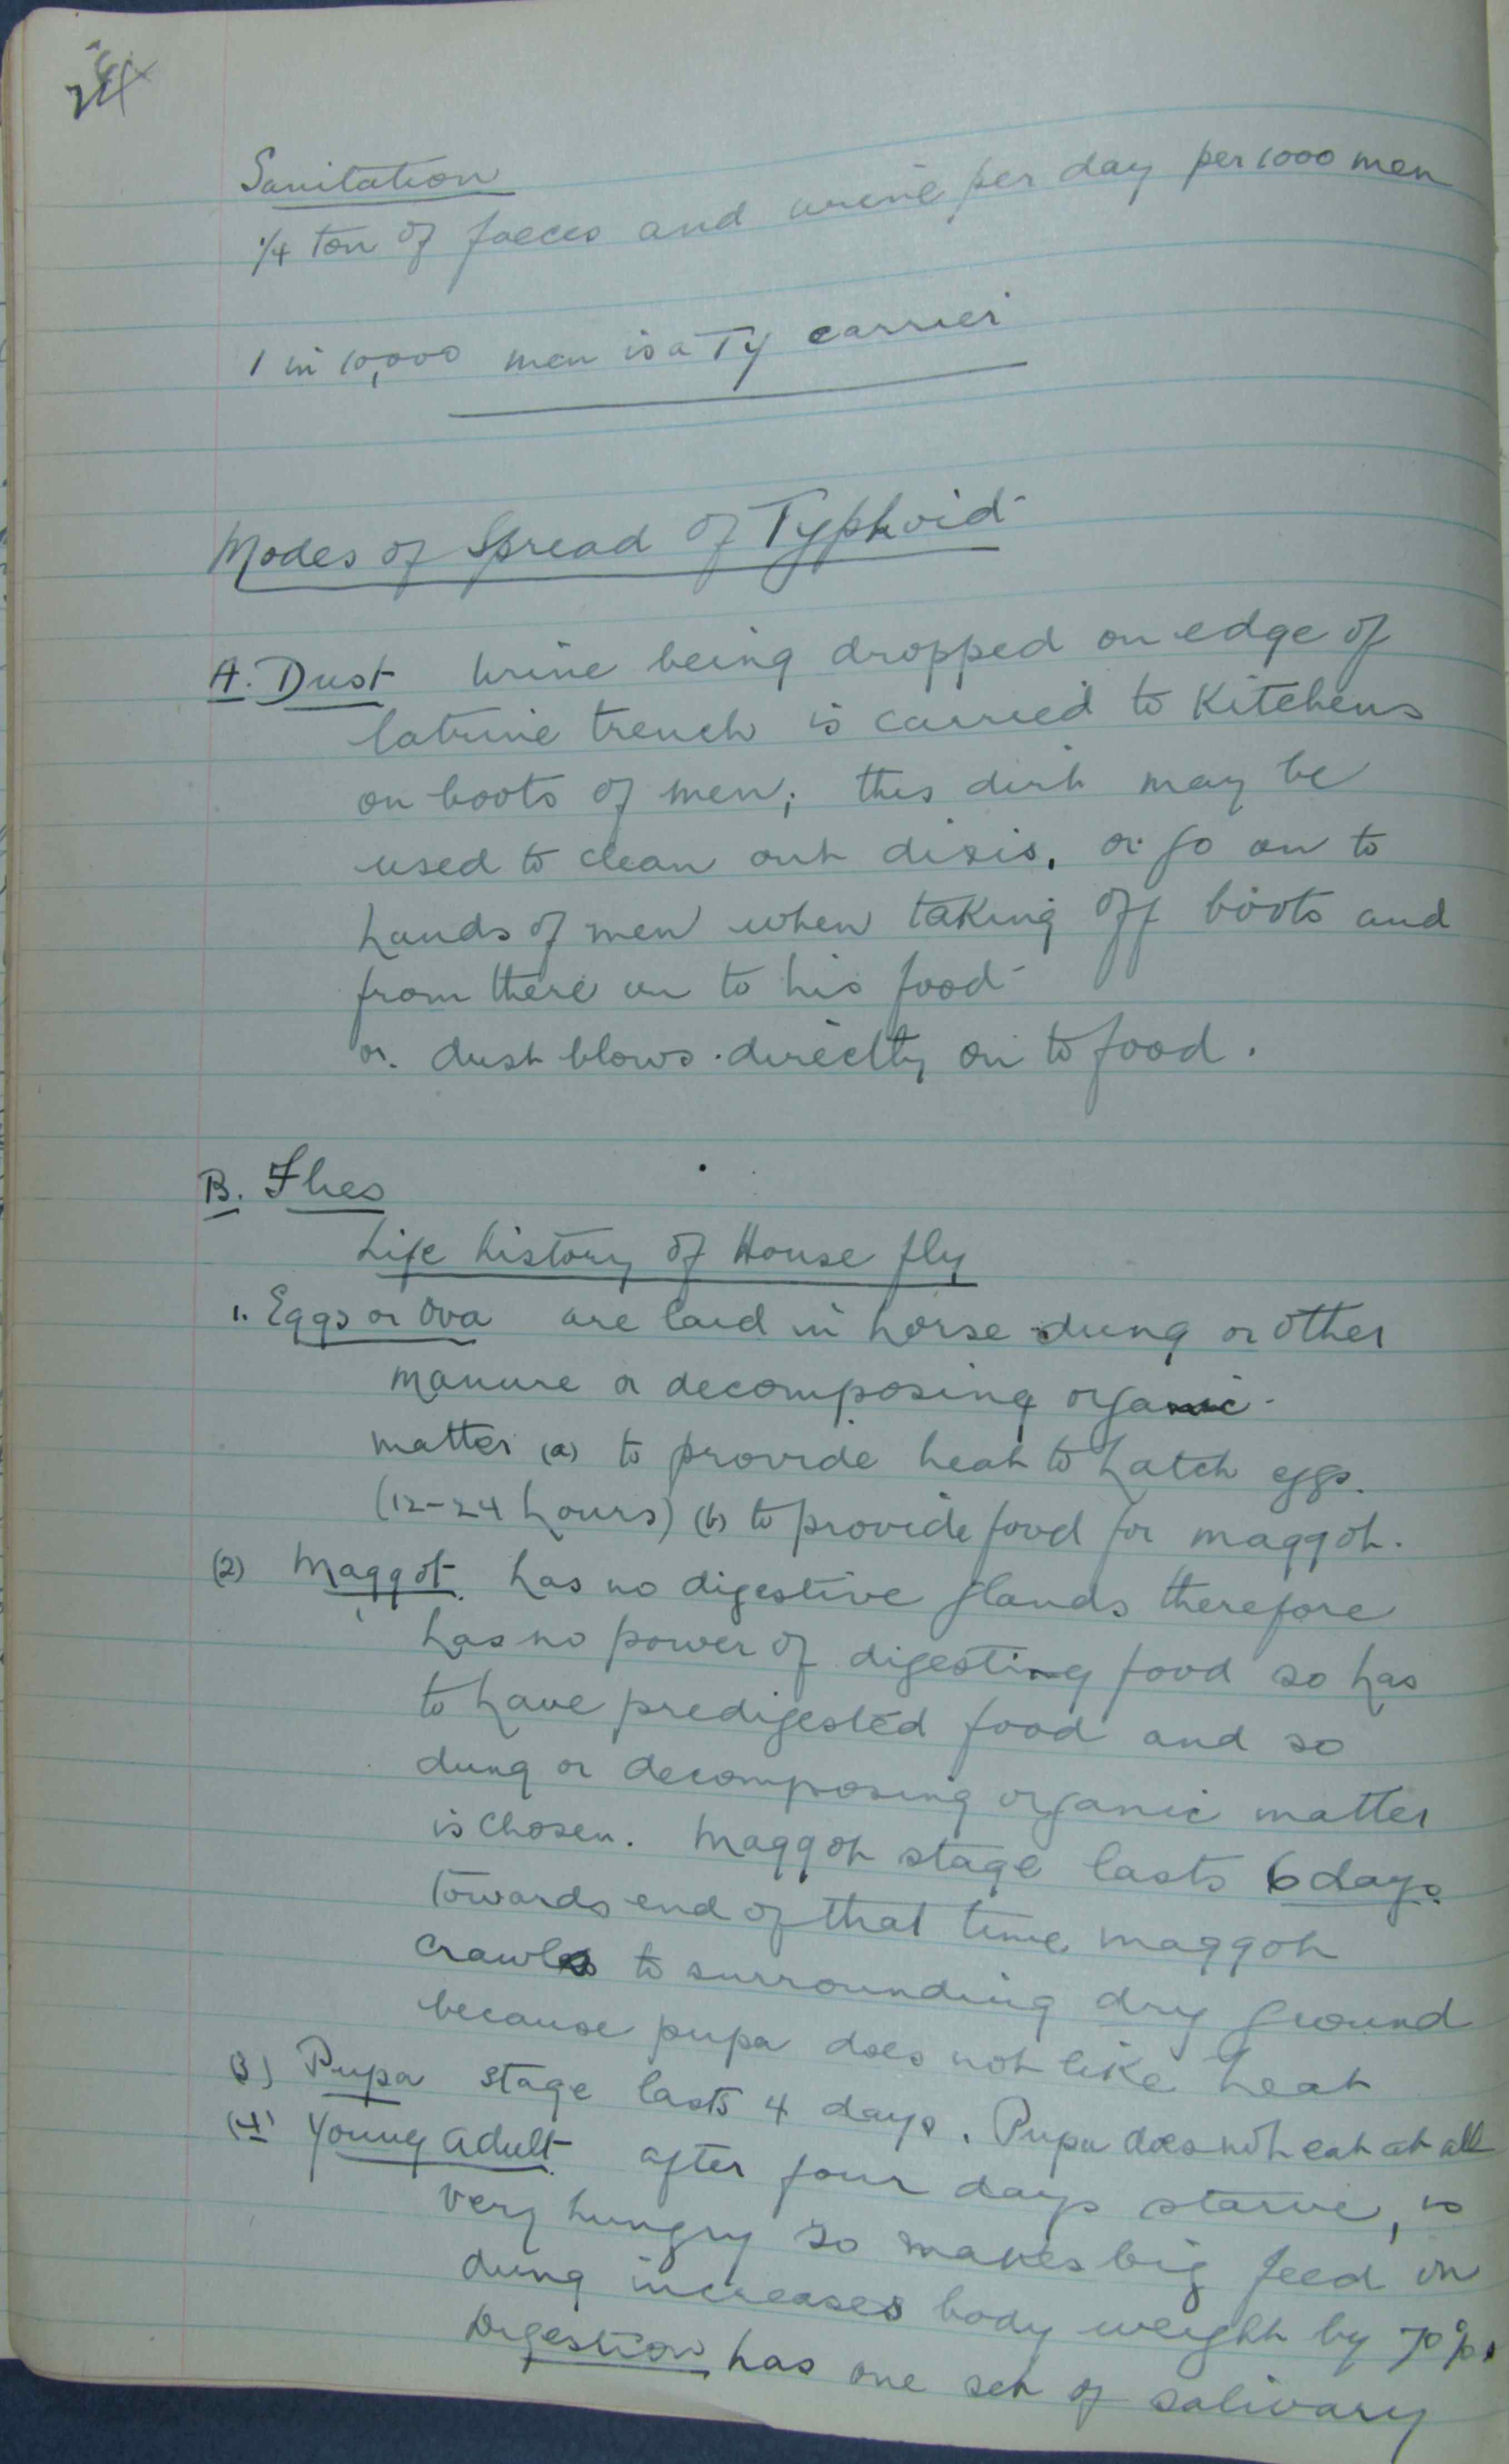 Sanitation
1/4 ton of faeces and urine per day per 1000 men
1 in 10,000 men is a Ty carrier
Modes of Spread of Typhoid
A. Dust Urine being dropped on edge of
latrine trench is carried to Kitchens
on boots of men; this dirt may be
used to clean out dixis, or go on to
hands of men when taking off boots and
from there on to his food
or dust blows directly on to food.
B. Flies
Life history of House fly
1. Eggs or Ova are laid in horse dung or other
manure or decomposing organic
matter (a) to provide heat to hatch eggs.
(12-24 hours) (b) to provide food for maggot.
(2) Maggot has no digestive glands therefore
has no power of digesting food so has
to have predigested food and so
dung or decomposing organic matter
is chosen. Maggot stage lasts 6 days.
Towards end of that time maggot
crawls to surrounding dry ground
because pupa does not like heat
(3) Pupa stage lasts 4 days. Pupa does not eat at all
(4) Young adult after four days starve, is
very hungry so makes big feed in
dung increases body weight by 70%.
Digestion has one set of salivary